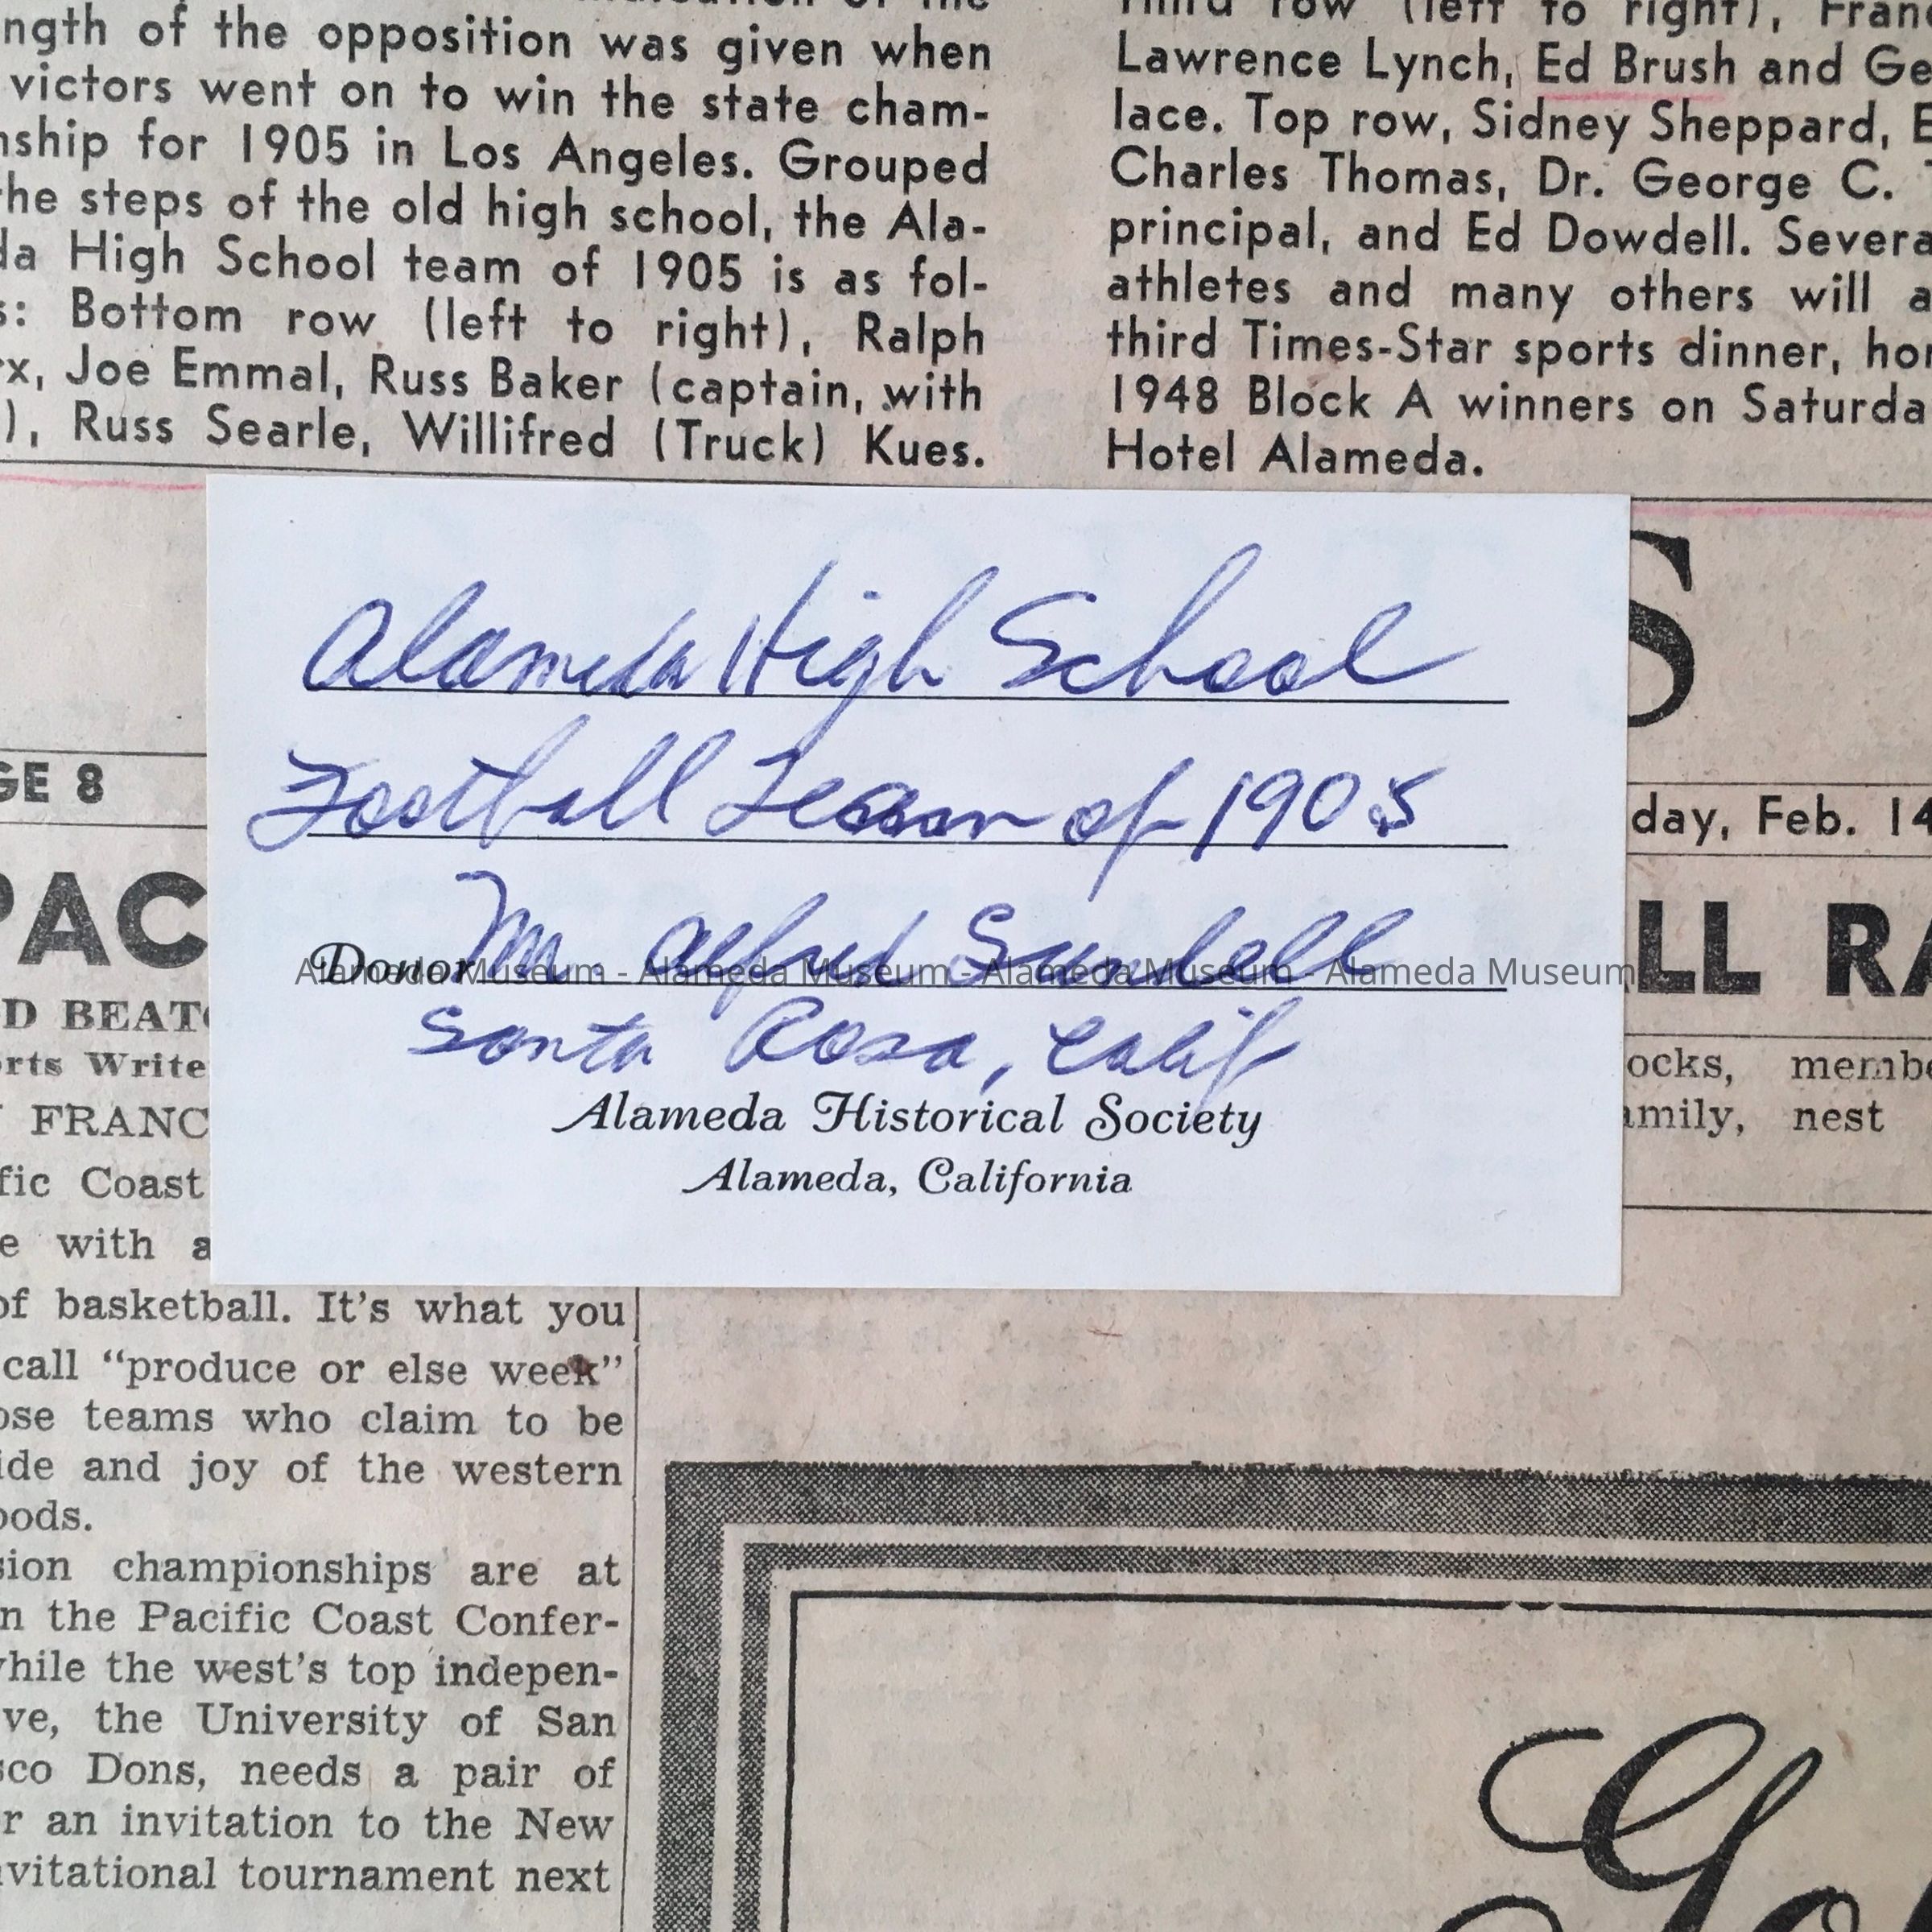 ngth of the opposition was given when
victors went on to win the state cham-
nship for 1905 in Los Angeles. Grouped
he steps of the old high school, the Ala-
da High School team of 1905 is as fol-
s: Bottom row (left to right), Ralph
rx, Joe Emmal, Russ Baker (captain, with
), Russ Searle, Willifred (Truck) Kues.
Third row (left to right), Fran
Lawrence Lynch, Ed Brush and Ge
lace. Top row, Sidney Sheppard, E
Charles Thomas, Dr. George C. T
principal, and Ed Dowdell. Severa
athletes and many others will a
third Times-Star sports dinner, hon
1948 Block A winners on Saturda
Hotel Alameda.
Alameda High School
Football Team of 1905
Donor M. Alfred Sundell
Santa Rosa, Calif
Alameda Historical Society
Alameda, California
Alameda Museum - Alameda Museum - Alameda Museum - Alameda Museum
S
GE 8
day, Feb. 14
PAC
LL RA
D BEAT
rts Write
FRANC
fic Coast
e with a
of basketball. It's what you
call "produce or else week"
ose teams who claim to be
ide and joy of the western
oods.
sion championships are at
n the Pacific Coast Confer-
while the west's top indepen-
ve, the University of San
sco Dons, needs a pair of
r an invitation to the New
nvitational tournament next
ocks, membe
amily, nest